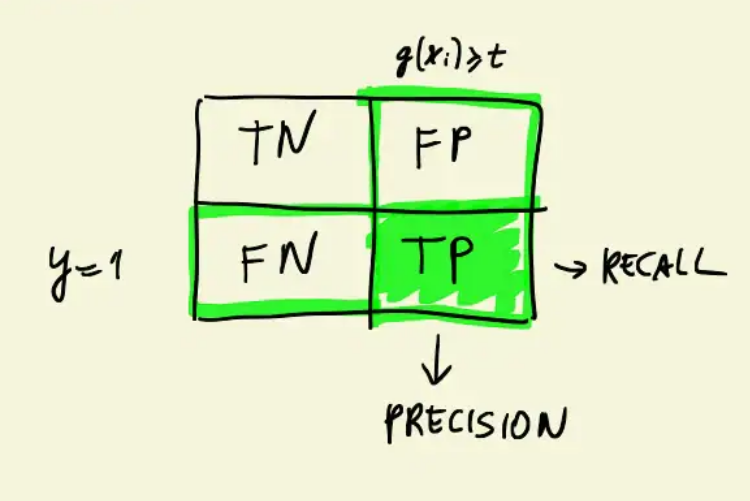 g(xi)≥t
TN FP
y=1 FN TP → RECALL
↓
PRECISION